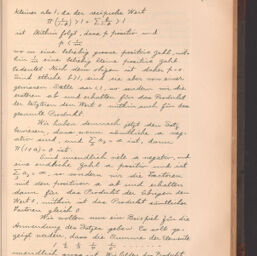 kleiner als 1, da der reciproke Wert
ist. Mithin folgt, dass p positiv und
wo m eine beliebig grosse positive Zahl, mit-
hin 1/m eine beliebig kleine positive Zahl
bedeutet. Nach dem obigen ist daher p = 0
Sind etliche b > 1, sind sie aber von einer
gewissen Stelle aus < 1, so sondern wir die
ersteren ab und erhalten für das Produkt
der letzteren den Wert 0 mithin auch für das
gesamte Produkt.
Wir haben demnach jetzt den Satz
bewiesen, dass wenn sämtliche a neg-
ativ sind, und Σ a = ∞ ist, dann
Π (1+a) = 0 ist.
Sind unendlich viele a negativ, und
eine endliche Zahl a positiv und ist
Σ a = ∞, so sondern wir die Factoren
mit den positiven a ab und erhalten
dann für das Produkt der übrigen den
Wert 0, mithin ist das Produkt sämtlicher
Factoren gleich 0.
Wir wollen nun ein Beispiel für die
Anwendung des Satzes geben. Es soll ge-
zeigt werden, dass die Summe der Elemente
unendlich gross ist. Wir bilden das Produkt